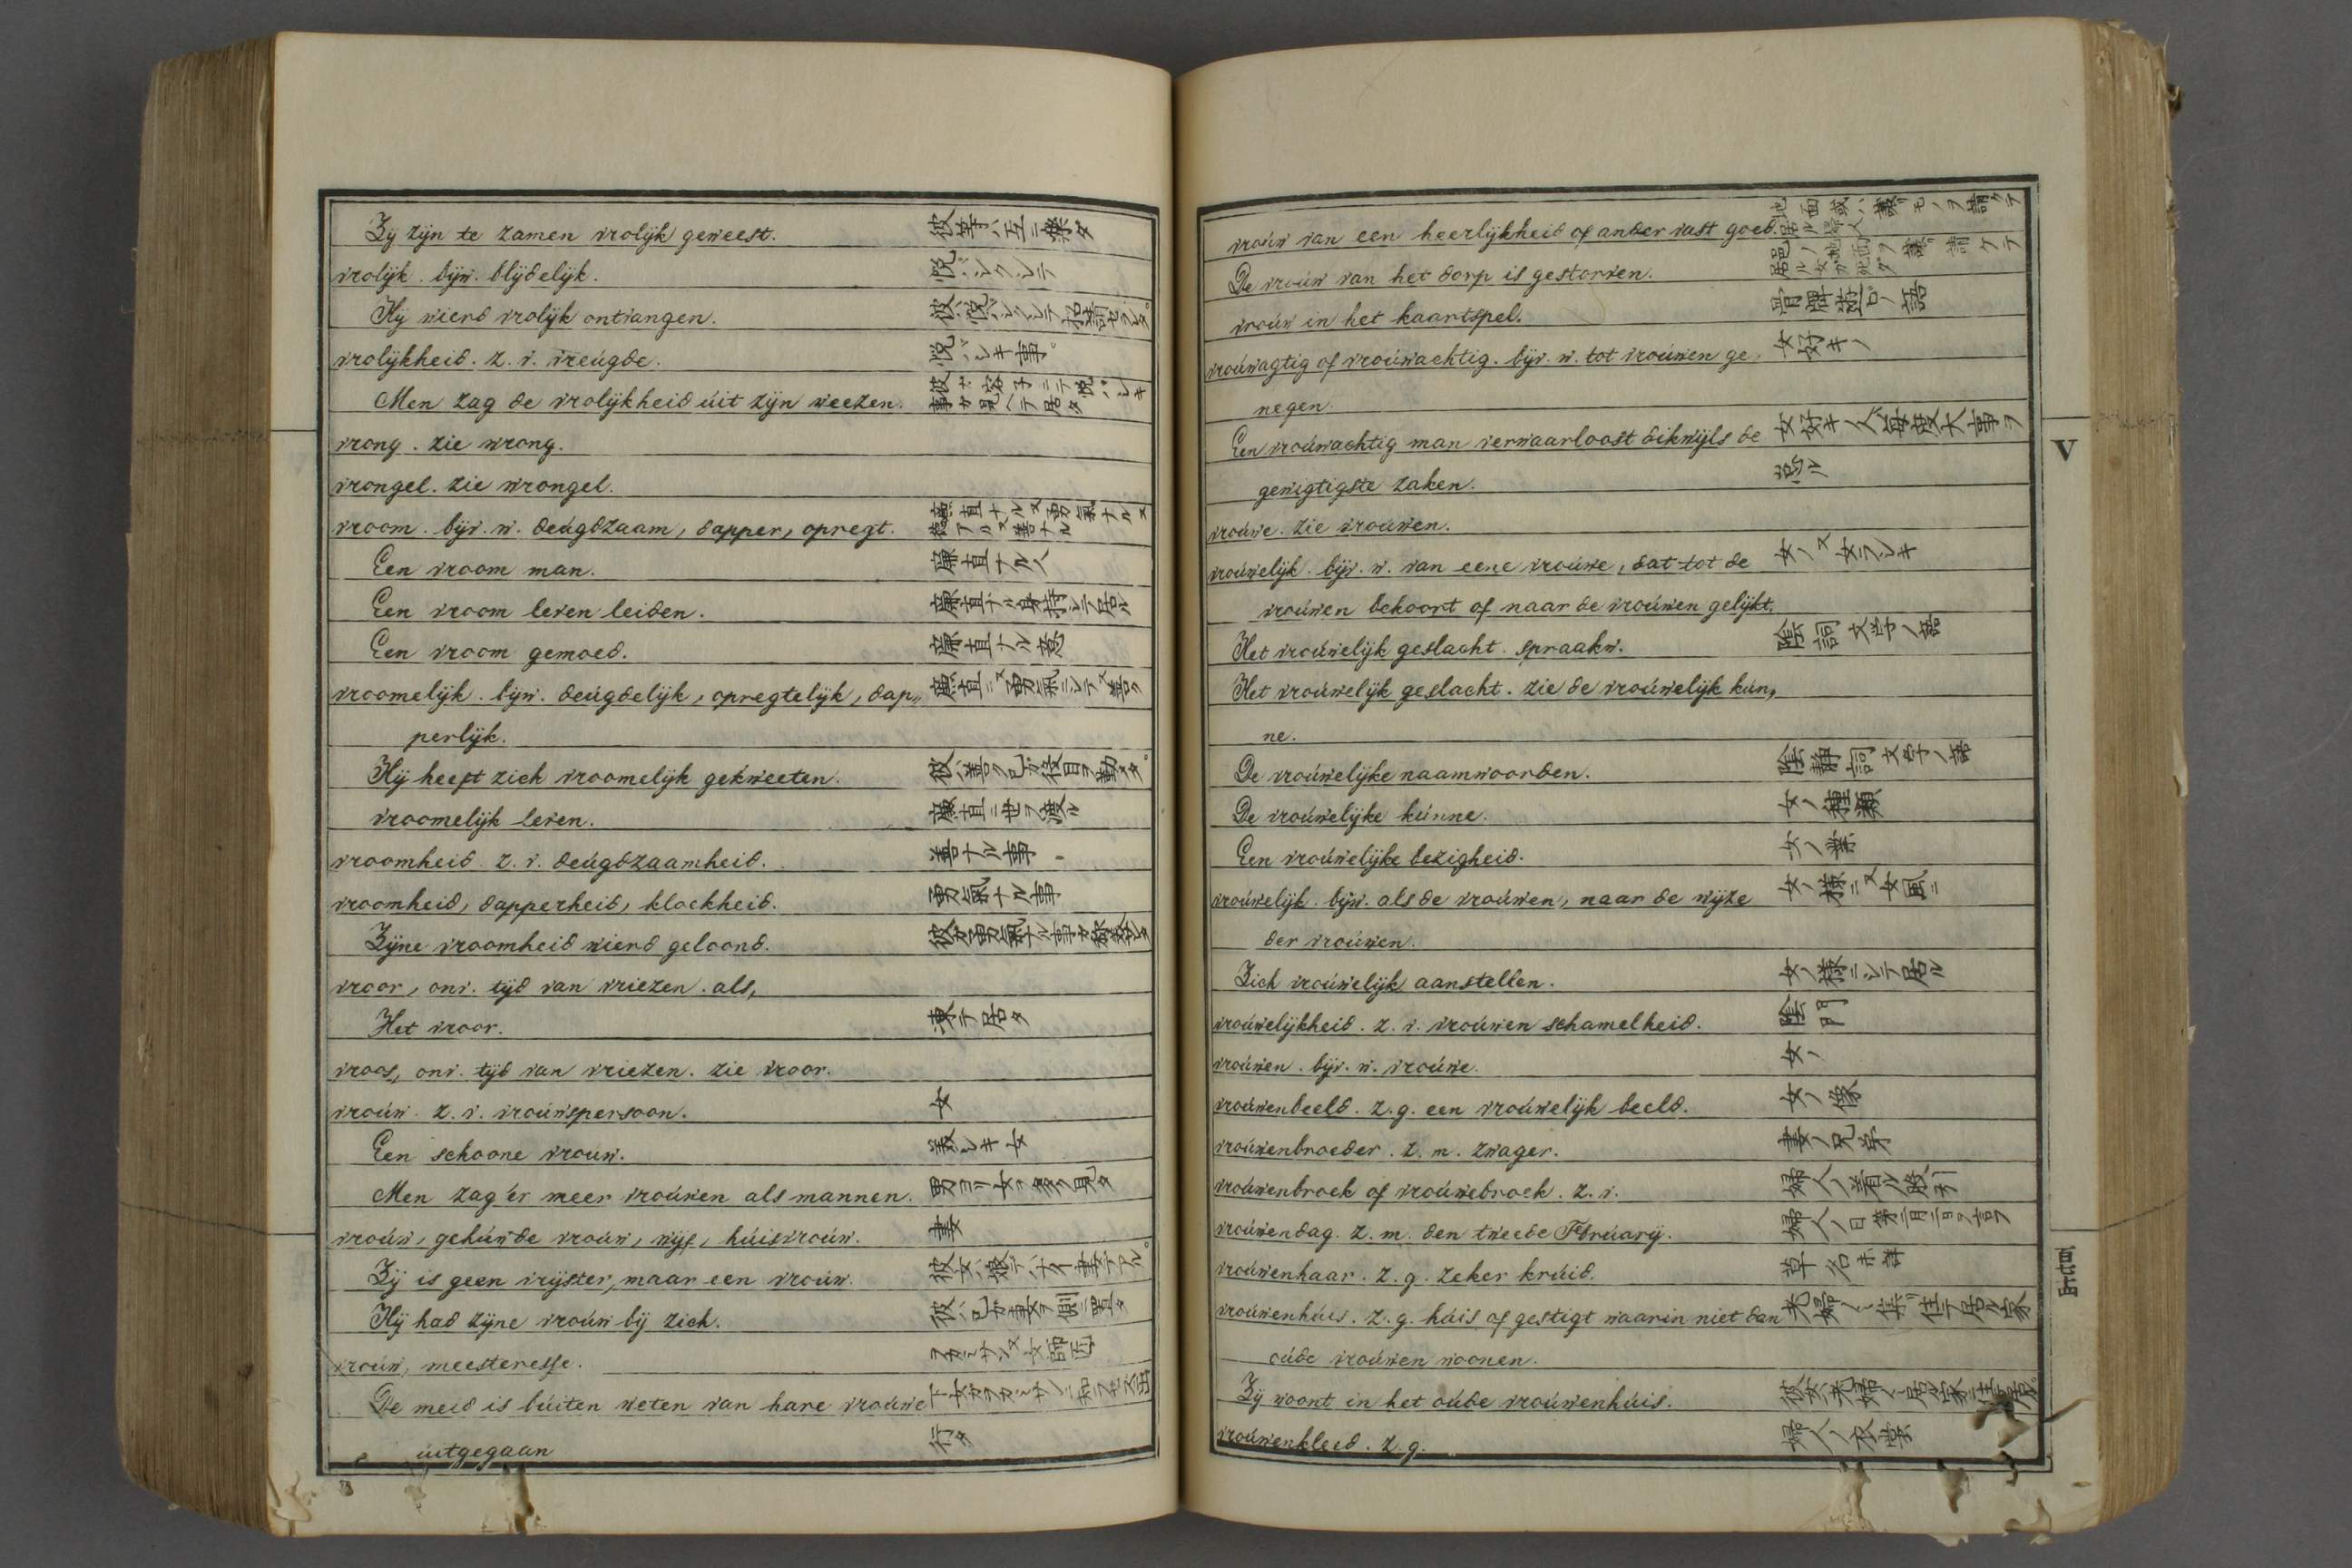 Zij zijn te zamen vrolijk geweest. 彼等ハ互ニ樂タ
vrolijk. bijw. blijdelijk. 悦バシクシテ
Hij wierd vrolijk ontvangen. 彼ハ悦バシクシテ
vrolijkheid. z. v. vreúgde. 悦バシキ事。
Men zag de vrolijkheid úit zijn weezen. 彼ガ容子ニテ悦バシキ事ガ見ヘテ居タ
vrong. zie wrong.
vrongel. zie wrongel.
vroom. bijv. w. deúgdzaam, dapper, opregt. 廉直ナル又勇氣ナル又 善ナル
Een vroom man. 廉直ナル人
Een vroom leven leiden. 廉直ナル身持シテ居ル
Een vroom gemoed. 廉直ナル意
vroomelijk. bijw. deúgdelijk, opregtelijk, dap„ 廉直ニ又勇氣ニシテ又善ク
perlijk.
Hij heeft zich vroomelijk gekweeten. 彼ハ善ク己ガ役目ヲ勤メタ。
vroomelijk leven. 廉直ニ世ヲ渡ル
vroomheid. z. v. deúgdzaamheid. 善ナル事。
vroomheid, dapperheid, kloekheid. 勇氣ナル事
Zijne vroomheid wierd geloond. 彼ガ勇氣ナル事ガ
vroor, onv. tijd van vriezen. als,
Het vroor. 凍テ居タ
vroos, onv. tijd van vriezen. zie vroor.
vroúw. z. v. vroúwspersoon. 女
Een schoone vroúw. 美シキ女
Men zag 'er meer vroúwen als mannen. 男ヨリ女ヲ多ク見タ
vroúw, gehúwde vroúw, wijf, húisvroúw. 妻
Zij is geen vrijster, maar een vroúw. 彼女ハ娘デハナイ妻デアル。
Hij had zijne vroúw bij zich. 彼ハ己ガ妻ヲ側ニ置タ
vroúw, meesteresse. ヲカミサン又女師匠
De meid is búiten weten van hare vroúwe 下女ガヲカミサンニ知ラセズ出
uitgegaan 行タ
vroúw van een heerlijkheid of ander vast goed. 地面或ハ譲リモノヲ請ケテ居ル婦人
De vroúw van het dorp is gestorven. 邑ノ地面ヲ譲リ請ケテ居ル女ガ死タ
vroúw in het kaartspel. 骨牌遊ビノ語
vroúwagtig of vroúwachtig. bijv. w. tot vroúwen ge, 女好キノ
negen.
Een vroúwachtig man verwaarloost dikwijls de 女好キノ人ハ毎度大事ヲ
gewigtigste zaken. 怠ル
vroúwe. zie vroúwen.
vroúwelijk. bijv. w. van eene vroúwe, dat tot de 女ノ又女ラシキ
vroúwen behoort of naar de vroúwen gelijkt.
Het vroúwelijk geslacht. spraakw. 陰詞文学ノ語
Het vroúwelijk geslacht. zie de vroúwelijk kún,
ne.
De vroúwelijke naamwoorden. 陰静詞文学ノ語
De vroúwelijke kúnne. 女ノ種類
Een vroúwelijke bezigheid. 女ノ業
vroúwelijk. bijw. als de vroúwen, naar de wijze 女ノ様ニ又女風ニ
der vroúwen.
Zich vroúwelijk aanstellen. 女ノ様ニシテ居ル
vroúwelijkheid. z. v. vroúwen schamelheid. 陰門
vroúwen. bijv. w. vroúwe. 女ノ
vroúwenbeeld. z. g. een vroúwelijk beeld. 女ノ像
vroúwenbroeder. z. m. zwager. 妻ノ兄弟
vroúwenbroek of vroúwebroek. z. v. 婦人ノ着ル股引
vroúwendag. z. m. den tweede Febrúarij. 婦人ノ日第二月二日ヲ言フ
vroúwenhaar. z. g. zeker krúid. 草名未詳
vroúwenhúis. z. g. húis of gestigt waarin niet dan 老婦ノミ集リ住テ居ル家
oúde vroúwen woonen.
Zij woont in het oúde vroúwenhúis. 彼女ハ老婦ノミ居ル家ニ住居ス。
vroúwenkleed. z. g. 婦人ノ衣裳
V